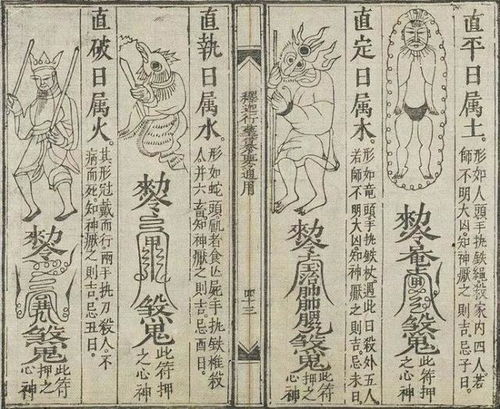 直平日属土。
形如人頭手执铁绳殺家内四人若
師不明大凶。知神厭之則吉。忌子日。
勅令
煞鬼
此符押
之心神
直定日属木。
形如竜頭手执铁杖遇此日殺外五人
若師不明大凶。知神厭之則吉。忌未日
勅令
煞鬼
此符
押之
心神
通用
四十三
直執日属水
形如蛇頭 者食亾屍手执铁椎殺
人并六畜知神厭之則吉。忌酉日。
勅令
煞鬼
此符押
之心神
直破日属火。
其形冠戴而行兩手执刀殺人。不
病而死。知神厭之則吉。忌丑日。
勅令
煞鬼
此符
押之
心神